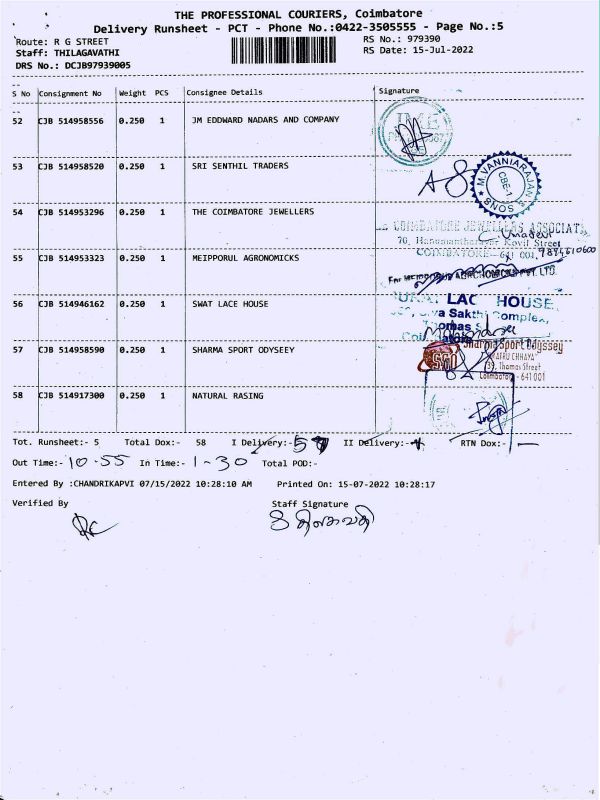 THE PROFESSIONAL COURIERS, Coimbatore
Delivery Runsheet - PCT - Phone No.:0422-3505555 - Page No.:5
Route: R G STREET RS No.: 979390
Staff: THILAGAVATHI RS Date: 15-Jul-2022
DRS No.: DCJB97939005
S No Consignment No Weight PCS Consignee Details Signature
52 CJB 514958556 0.250 1 JM EDDWARD NADARS AND COMPANY
53 CJB 514958520 0.250 1 SRI SENTHIL TRADERS
M VANNIARAJAN & SONS CBE-1
54 CJB 514953296 0.250 1 THE COIMBATORE JEWELLERS
COIMBATORE JEWELLERS ASSOCIAT
C. Umadevi
70, Hanumantharayar Kovil Street
COIMBATORE-641 001. 9894610600
55 CJB 514953323 0.250 1 MEIPPORUL AGRONOMICKS
56 CJB 514946162 0.250 1 SWAT LACE HOUSE
LAC HOUSE
Sakthi Complex,
57 CJB 514958590 0.250 1 SHARMA SPORT ODYSEEY
Sharma Sport Odyssey
SSO
39, Thomas Street
Coimbatore - 641 001
58 CJB 514917300 0.250 1 NATURAL RASING
Tot. Runsheet:- 5 Total Dox:- 58 I Delivery:- 57 II Delivery:- RTN Dox:-
Out Time:- 10-55 In Time:- 1-30 Total POD:-
Entered By :CHANDRIKAPVI 07/15/2022 10:28:10 AM Printed On: 15-07-2022 10:28:17
Verified By Staff Signature
திலகவதி